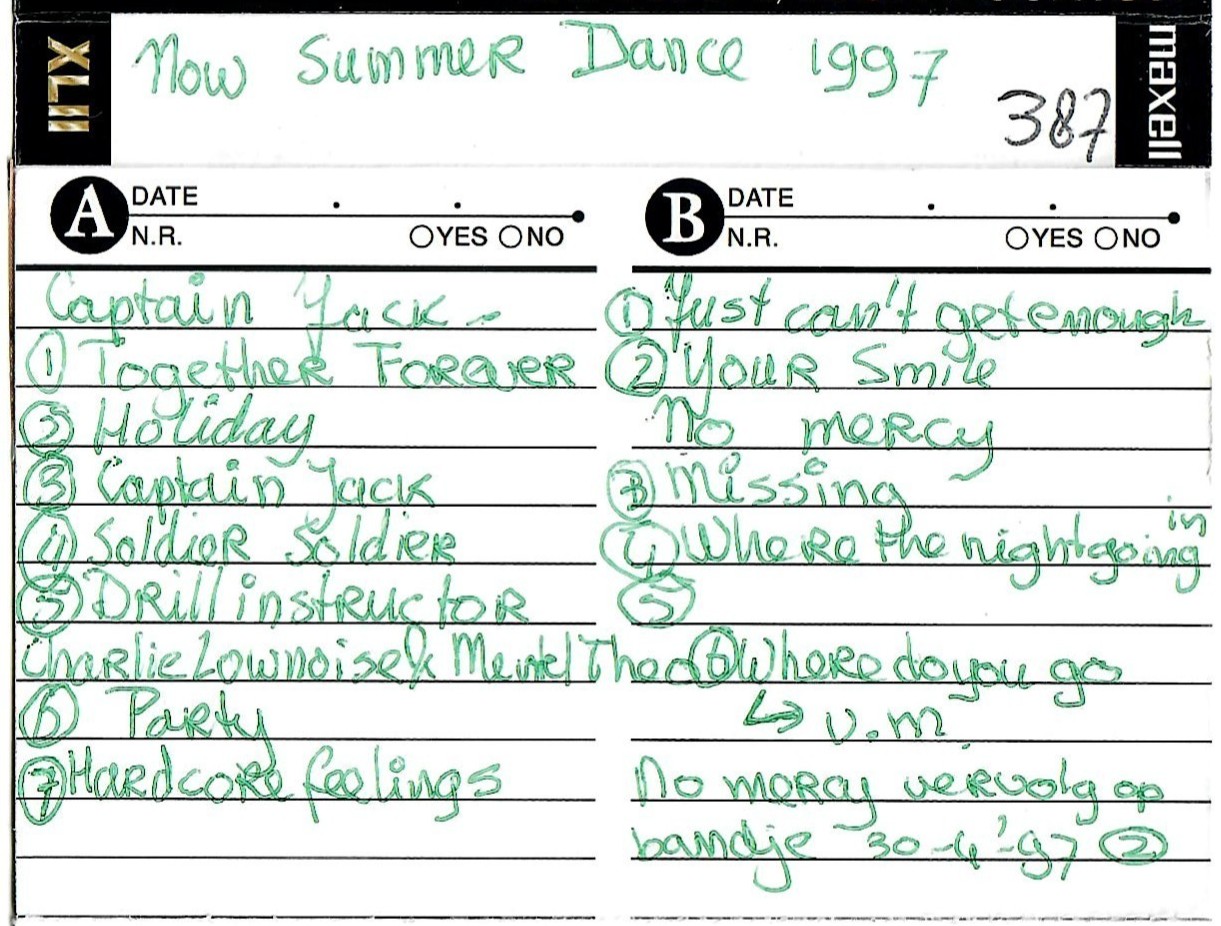 XLII
Now Summer Dance 1997
387
maxell
A DATE
N.R. YES NO
Captain Jack -
① Together Forever
② Holiday
③ Captain Jack
④ Soldier Soldier
⑤ Drill instructor
Charlie Lownoise & Mental Theo
⑥ Party
⑦ Hardcore feelings
B DATE
N.R. YES NO
① Just can't get enough
② Your Smile
No mercy
③ Missing
in
④ Where the night going
⑤
⑥ Where do you go
↳ v.m.
No mercy vervolg op
bandje 30-4-'97 ②